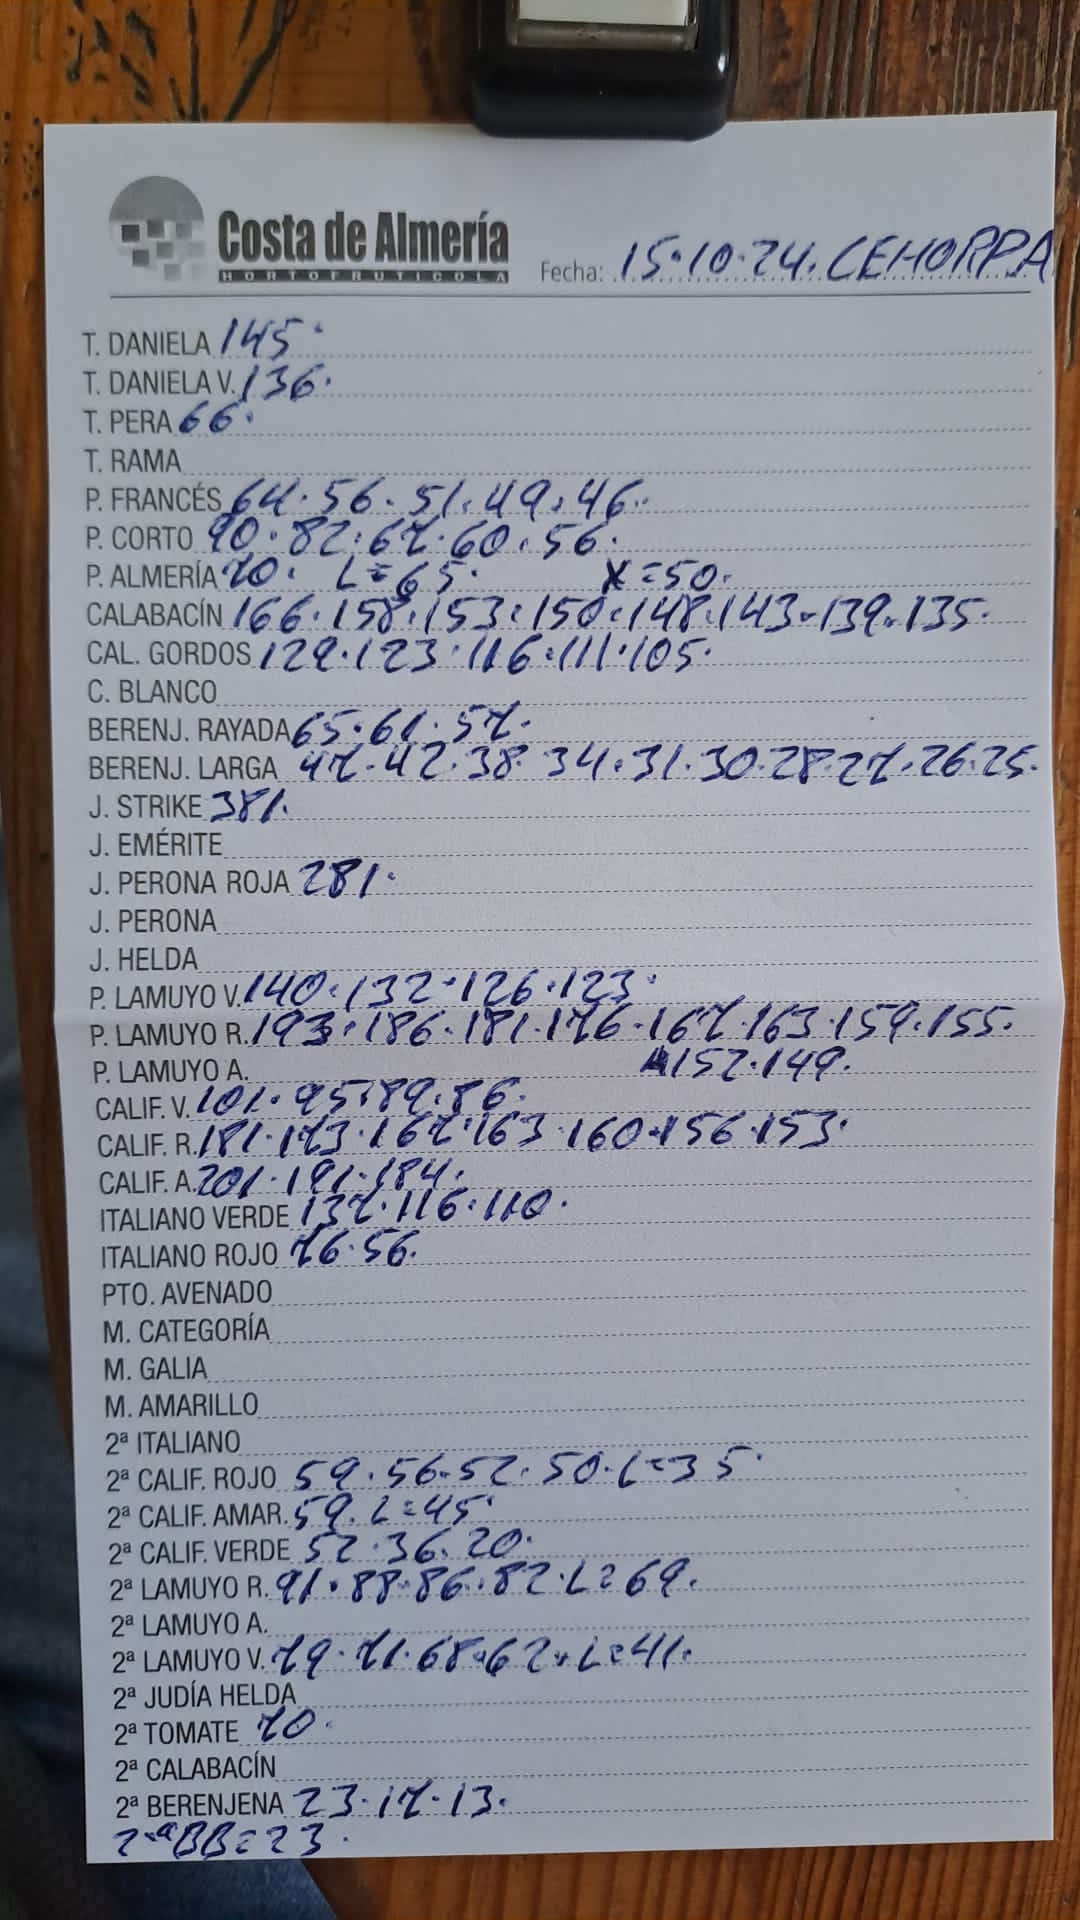 Costa de Almería
HORTOFRUTICOLA
Fecha: 15.10.24. CEHORPA
T. DANIELA 145.
T. DANIELA V. 136.
T. PERA 66.
T. RAMA
P. FRANCÉS 64. 56. 51. 49. 46.
P. CORTO 90. 82. 67. 60. 56.
P. ALMERÍA 70. L=65. X=50.
CALABACÍN 166. 158. 153. 150. 148. 143. 139. 135.
CAL. GORDOS 129. 123. 116. 111. 105.
C. BLANCO
BERENJ. RAYADA 65. 61. 57.
BERENJ. LARGA 47. 42. 38. 34. 31. 30. 28. 27. 26. 25.
J. STRIKE 381.
J. EMÉRITE
J. PERONA ROJA 281.
J. PERONA
J. HELDA
P. LAMUYO V. 140. 132. 126. 123.
P. LAMUYO R. 193. 186. 181. 176. 167. 163. 159. 155.
P. LAMUYO A. 152. 149.
CALIF. V. 101. 95. 89. 86.
CALIF. R. 181. 173. 167. 163. 160. 156. 153.
CALIF. A. 201. 191. 184.
ITALIANO VERDE 137. 116. 110.
ITALIANO ROJO 76. 56.
PTO. AVENADO
M. CATEGORÍA
M. GALIA
M. AMARILLO
2ª ITALIANO
2ª CALIF. ROJO 59. 56. 52. 50. L=35.
2ª CALIF. AMAR. 59. L=45.
2ª CALIF. VERDE 52. 36. 20.
2ª LAMUYO R. 91. 88. 86. 82. L=69.
2ª LAMUYO A.
2ª LAMUYO V. 79. 71. 68. 62. L=41.
2ª JUDÍA HELDA
2ª TOMATE 70.
2ª CALABACÍN
2ª BERENJENA 23. 17. 13.
2ª BB=23.